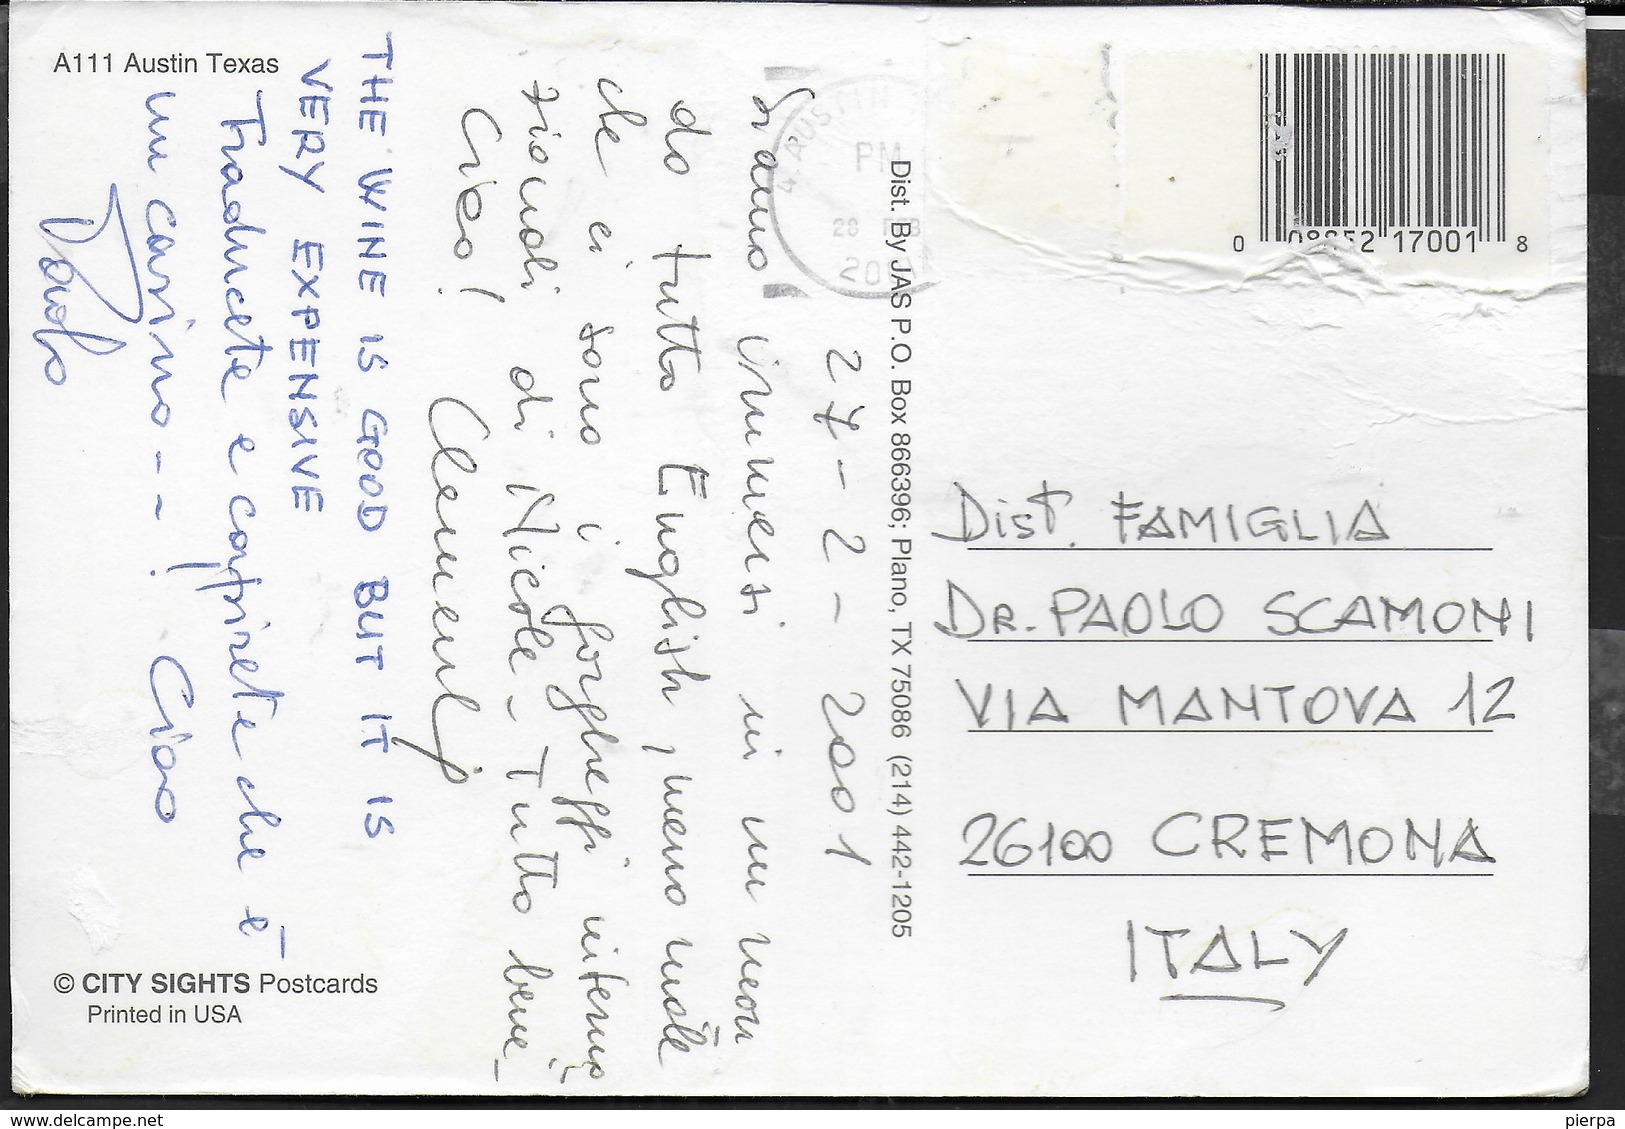 A111 Austin Texas
27-2-2001
Siamo immersi in un mon
do tutto English, meno male
che ci sono i gorgheggi interna
zionali di Nicole - Tutto bene -
Ciao! Clement
THE WINE IS GOOD BUT IT IS
VERY EXPENSIVE
Traducete e capirete che è
un casino --! Ciao
Paolo
© CITY SIGHTS Postcards
Printed in USA
Dist. By JAS P.O. Box 866396; Plano, TX 75086 (214) 442-1205
AUSTIN
PM
28 FEB
0 08852 17001 8
Dist. FAMIGLIA
DR. PAOLO SCAMONI
VIA MANTOVA 12
26100 CREMONA
ITALY
delcampe.net
pierpa